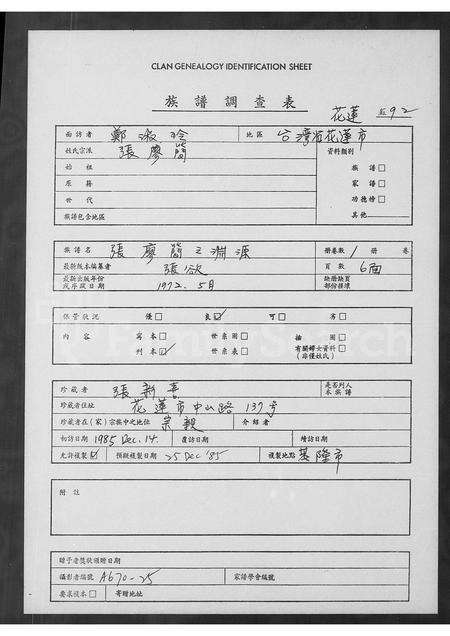 CLAN GENEALOGY IDENTIFICATION SHEET
族譜調查表
花蓮 92
面訪者 鄭淑玲 地區 台灣省花蓮市
姓氏宗派 張廖簡 資料類別
始祖 族譜□
原籍 家譜□
世代 功德榜□
族譜包含地區 其他
族譜名 張廖簡之淵源 冊卷數 1 冊 卷
最新版本編纂者 張欲 頁數 6面
最新出版年份或序跋日期 1972. 5月 缺冊缺頁部份損壞
保管狀況 優□ 良☑ 可□ 劣□
內容 寫本□ 世系圖□ 插圖□
刊本☑ 世系表□ 有關婦女資料□(非僅姓氏)
珍藏者 張新喜 是否列入本族譜
珍藏者住址 花蓮市中山路137号
珍藏者在(家)宗族中之地位 宗親 介紹者
初訪日期 1985 Dec. 14. 複訪日期 續訪日期
允許複製☑ 預擬複製日期 25 Dec '85 複製地點 基隆市
附註
贈予者獎狀頒贈日期
攝影者編號 A670-25 家譜學會編號
要求謄本□ 寄贈地址